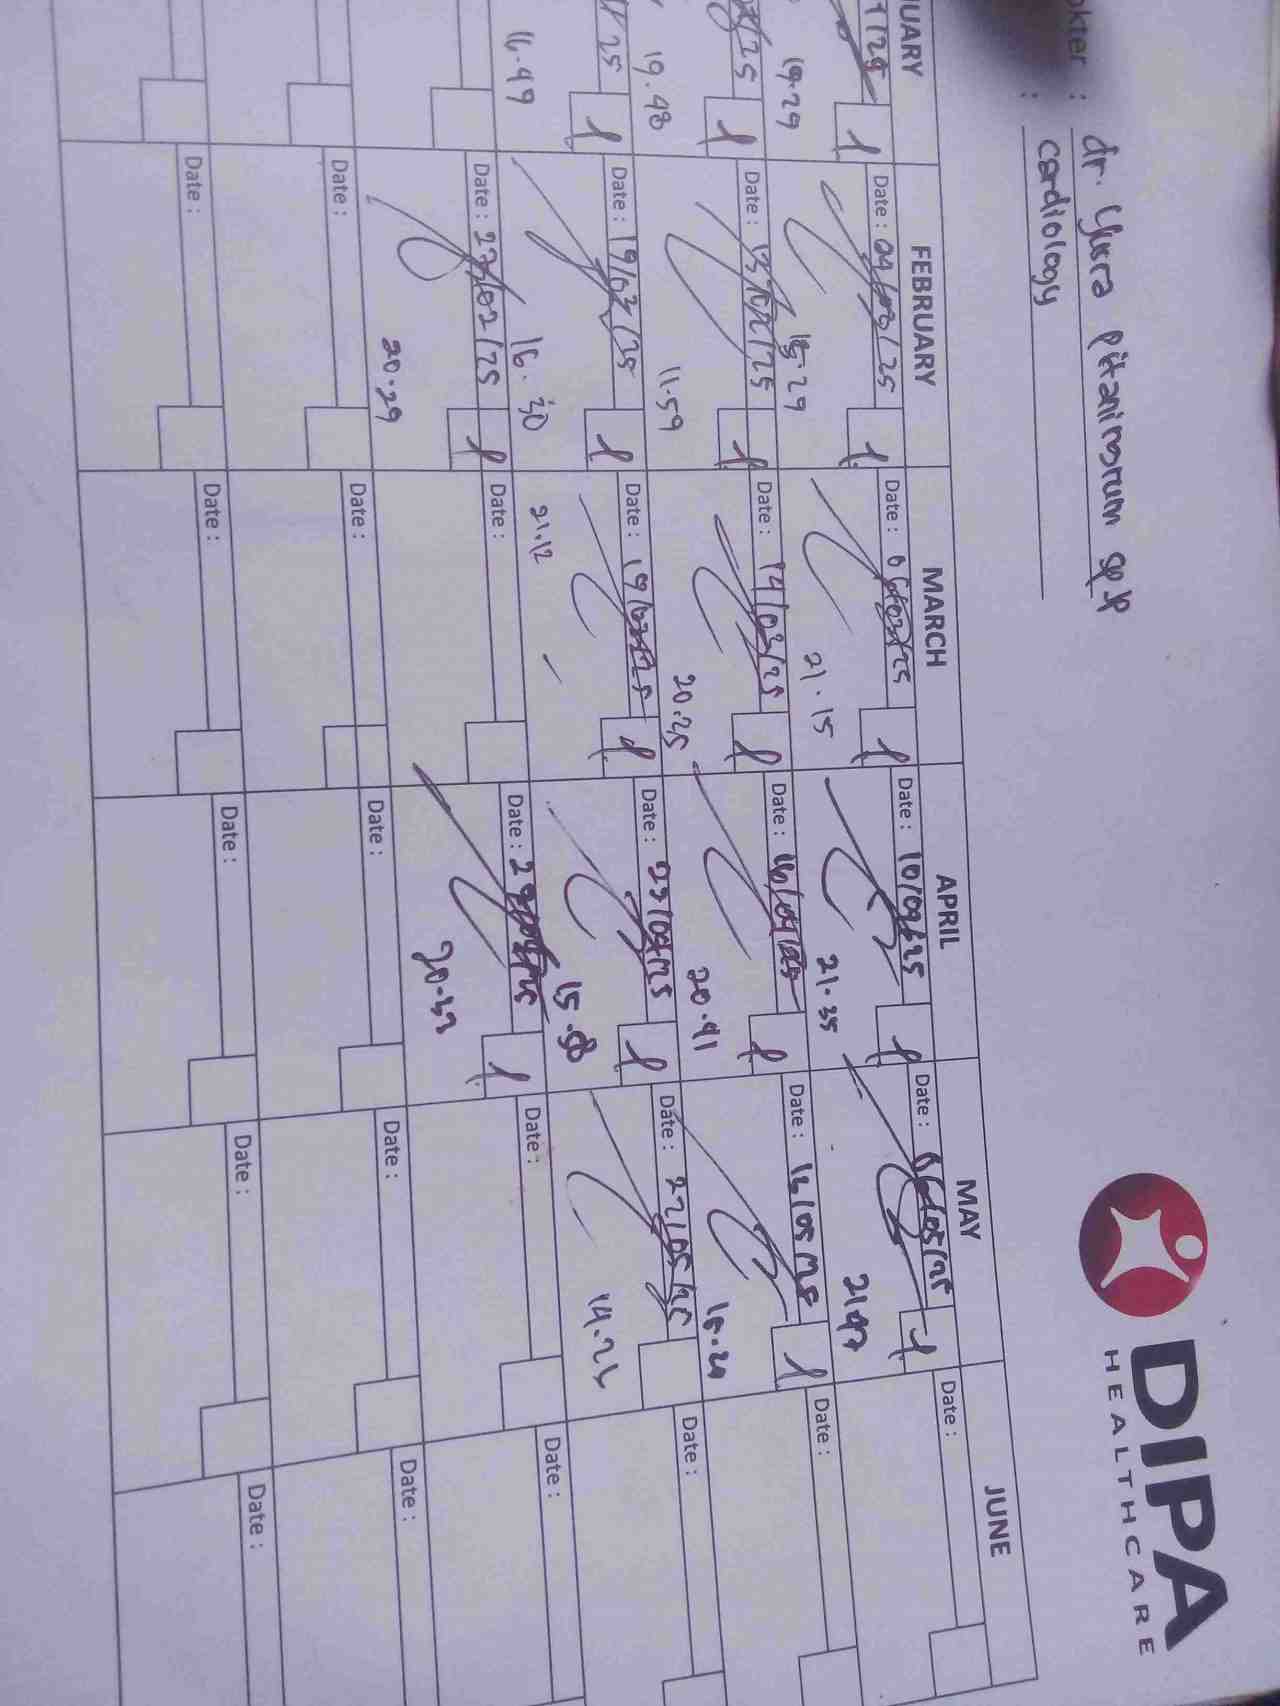 DIPA
HEALTHCARE
okter : dr. Yusra pitaningrum sp JP
: cardiology
UARY FEBRUARY MARCH APRIL MAY JUNE
Date : Date : 06/03/25 Date : 10/04/25 Date : 06/05/25 Date :
19.29 18.29 21.15 21.35 21.47
/25 Date : 13/02/25 Date : 14/03/25 Date : 16/04/25 Date : 16/05/25 Date :
19.48 11.59 20.25 20.41 18.29
/25 Date : 19/02/25 Date : 19/03/25 Date : 23/04/25 Date : 22/05/25 Date :
16.49 16.30 21.12 15.58 14.25
Date : 27/02/25 Date : Date : 29/04/25 Date : Date :
20.29 20.33
Date : Date : Date : Date : Date :
Date : Date : Date : Date : Date :